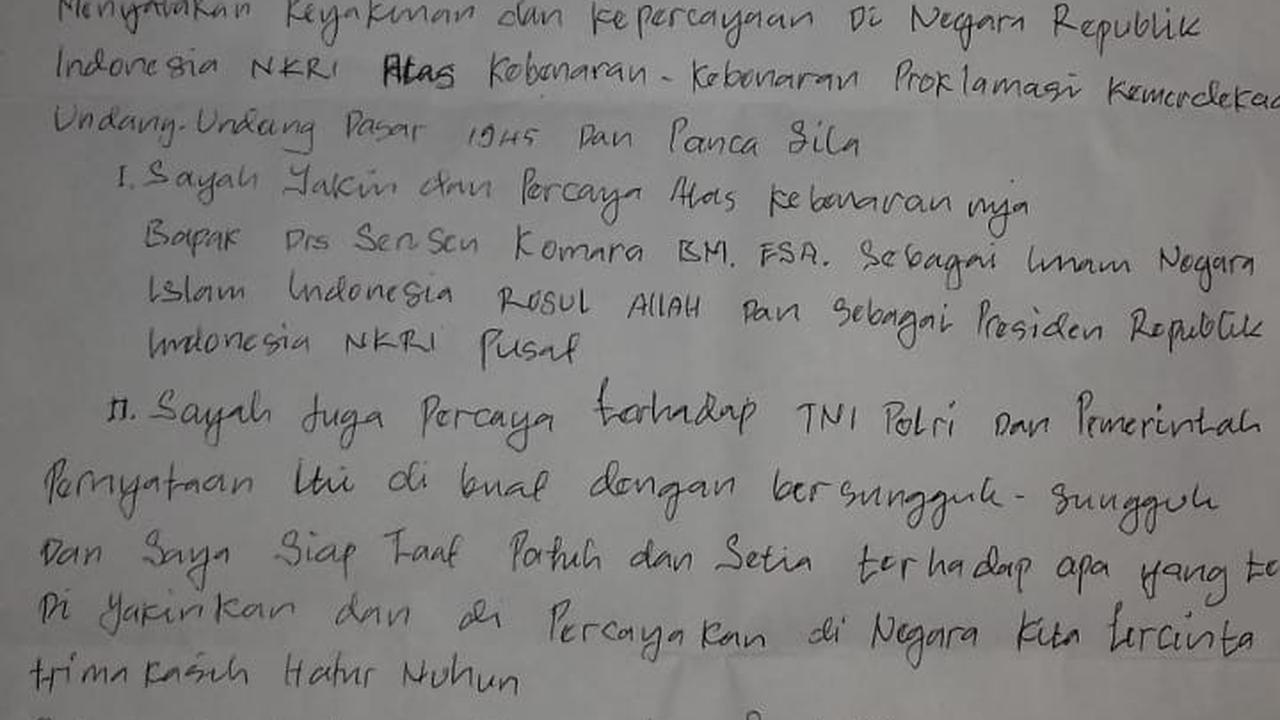 Menyatakan Keyakinan dan kepercayaan Di Negara Republik
Indonesia NKRI Atas Kebenaran - Kebenaran Proklamasi Kemerdekaa
Undang-Undang Dasar 1945 Dan Panca Sila
I. Sayah Yakin dan Percaya Atas kebenaran nya
Bapak Drs Sensen Komara BM. ESA. Sebagai Imam Negara
Islam Indonesia ROSUL AllAH Dan Sebagai Presiden Republik
Indonesia NKRI Pusat
II. Sayah Juga Percaya terhadap TNI Polri Dan Pemerintah
Pernyataan Ini di buat dengan bersungguh - sungguh
Dan Saya Siap Taat Patuh dan Setia terhadap apa yang te
Di Yakinkan dan di Percayakan di Negara Kita tercinta
trima kasih Hatur Nuhun